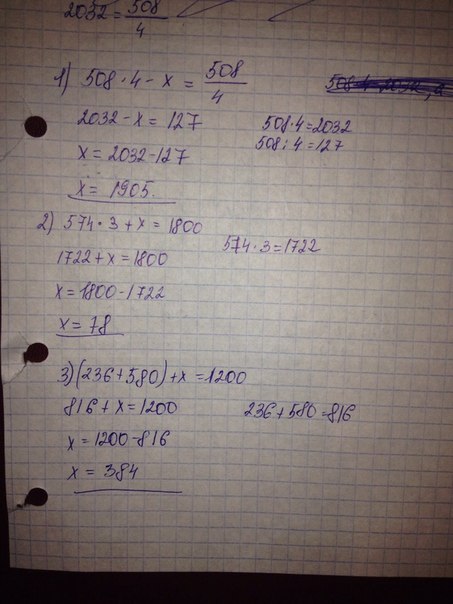 2032 = 508/4
1) 508 · 4 - x = 508/4
2032 - x = 127
508 · 4 = 2032
508 : 4 = 127
x = 2032 - 127
x = 1905.
2) 574 · 3 + x = 1800
574 · 3 = 1722
1722 + x = 1800
x = 1800 - 1722
x = 78
3) (236 + 580) + x = 1200
816 + x = 1200
236 + 580 = 816
x = 1200 - 816
x = 384